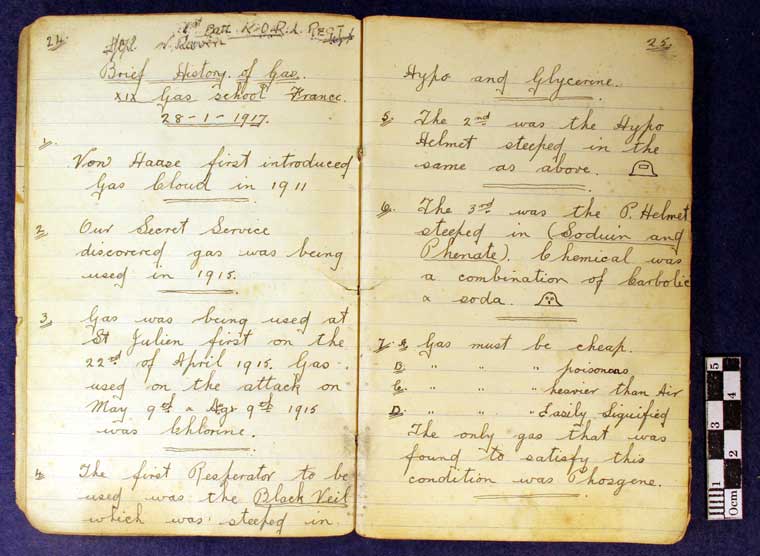 24.
1st Batt. K.O.R.L. Regt
Brief History of Gas.
XIX Gas School France.
28-1-1917.
1.
Von Haase first introduced
Gas Cloud in 1911
2.
Our Secret Service
discovered gas was being
used in 1915.
3
Gas was being used at
St Julien first on the
22nd of April 1915. Gas
used on the attack on
May 9th & 9th 1915
was Chlorine.
4.
The first Resperator to be
used was the Black Veil
which was steeped in
25.
Hypo and Glycerine.
5. The 2nd was the Hypo
Helmet steeped in the
same as above.
6. The 3rd was the P. Helmet
steeped in (Soduin and
Phenate). Chemical was
a combination of Carbolic
& soda.
7. A Gas must be cheap.
B. " " " poisonous
C. " " " heavier than Air
D. " " " Easily Liquified
The only gas that was
found to satisfy this
condition was Phosgene.
5
4
3
2
1
0cm